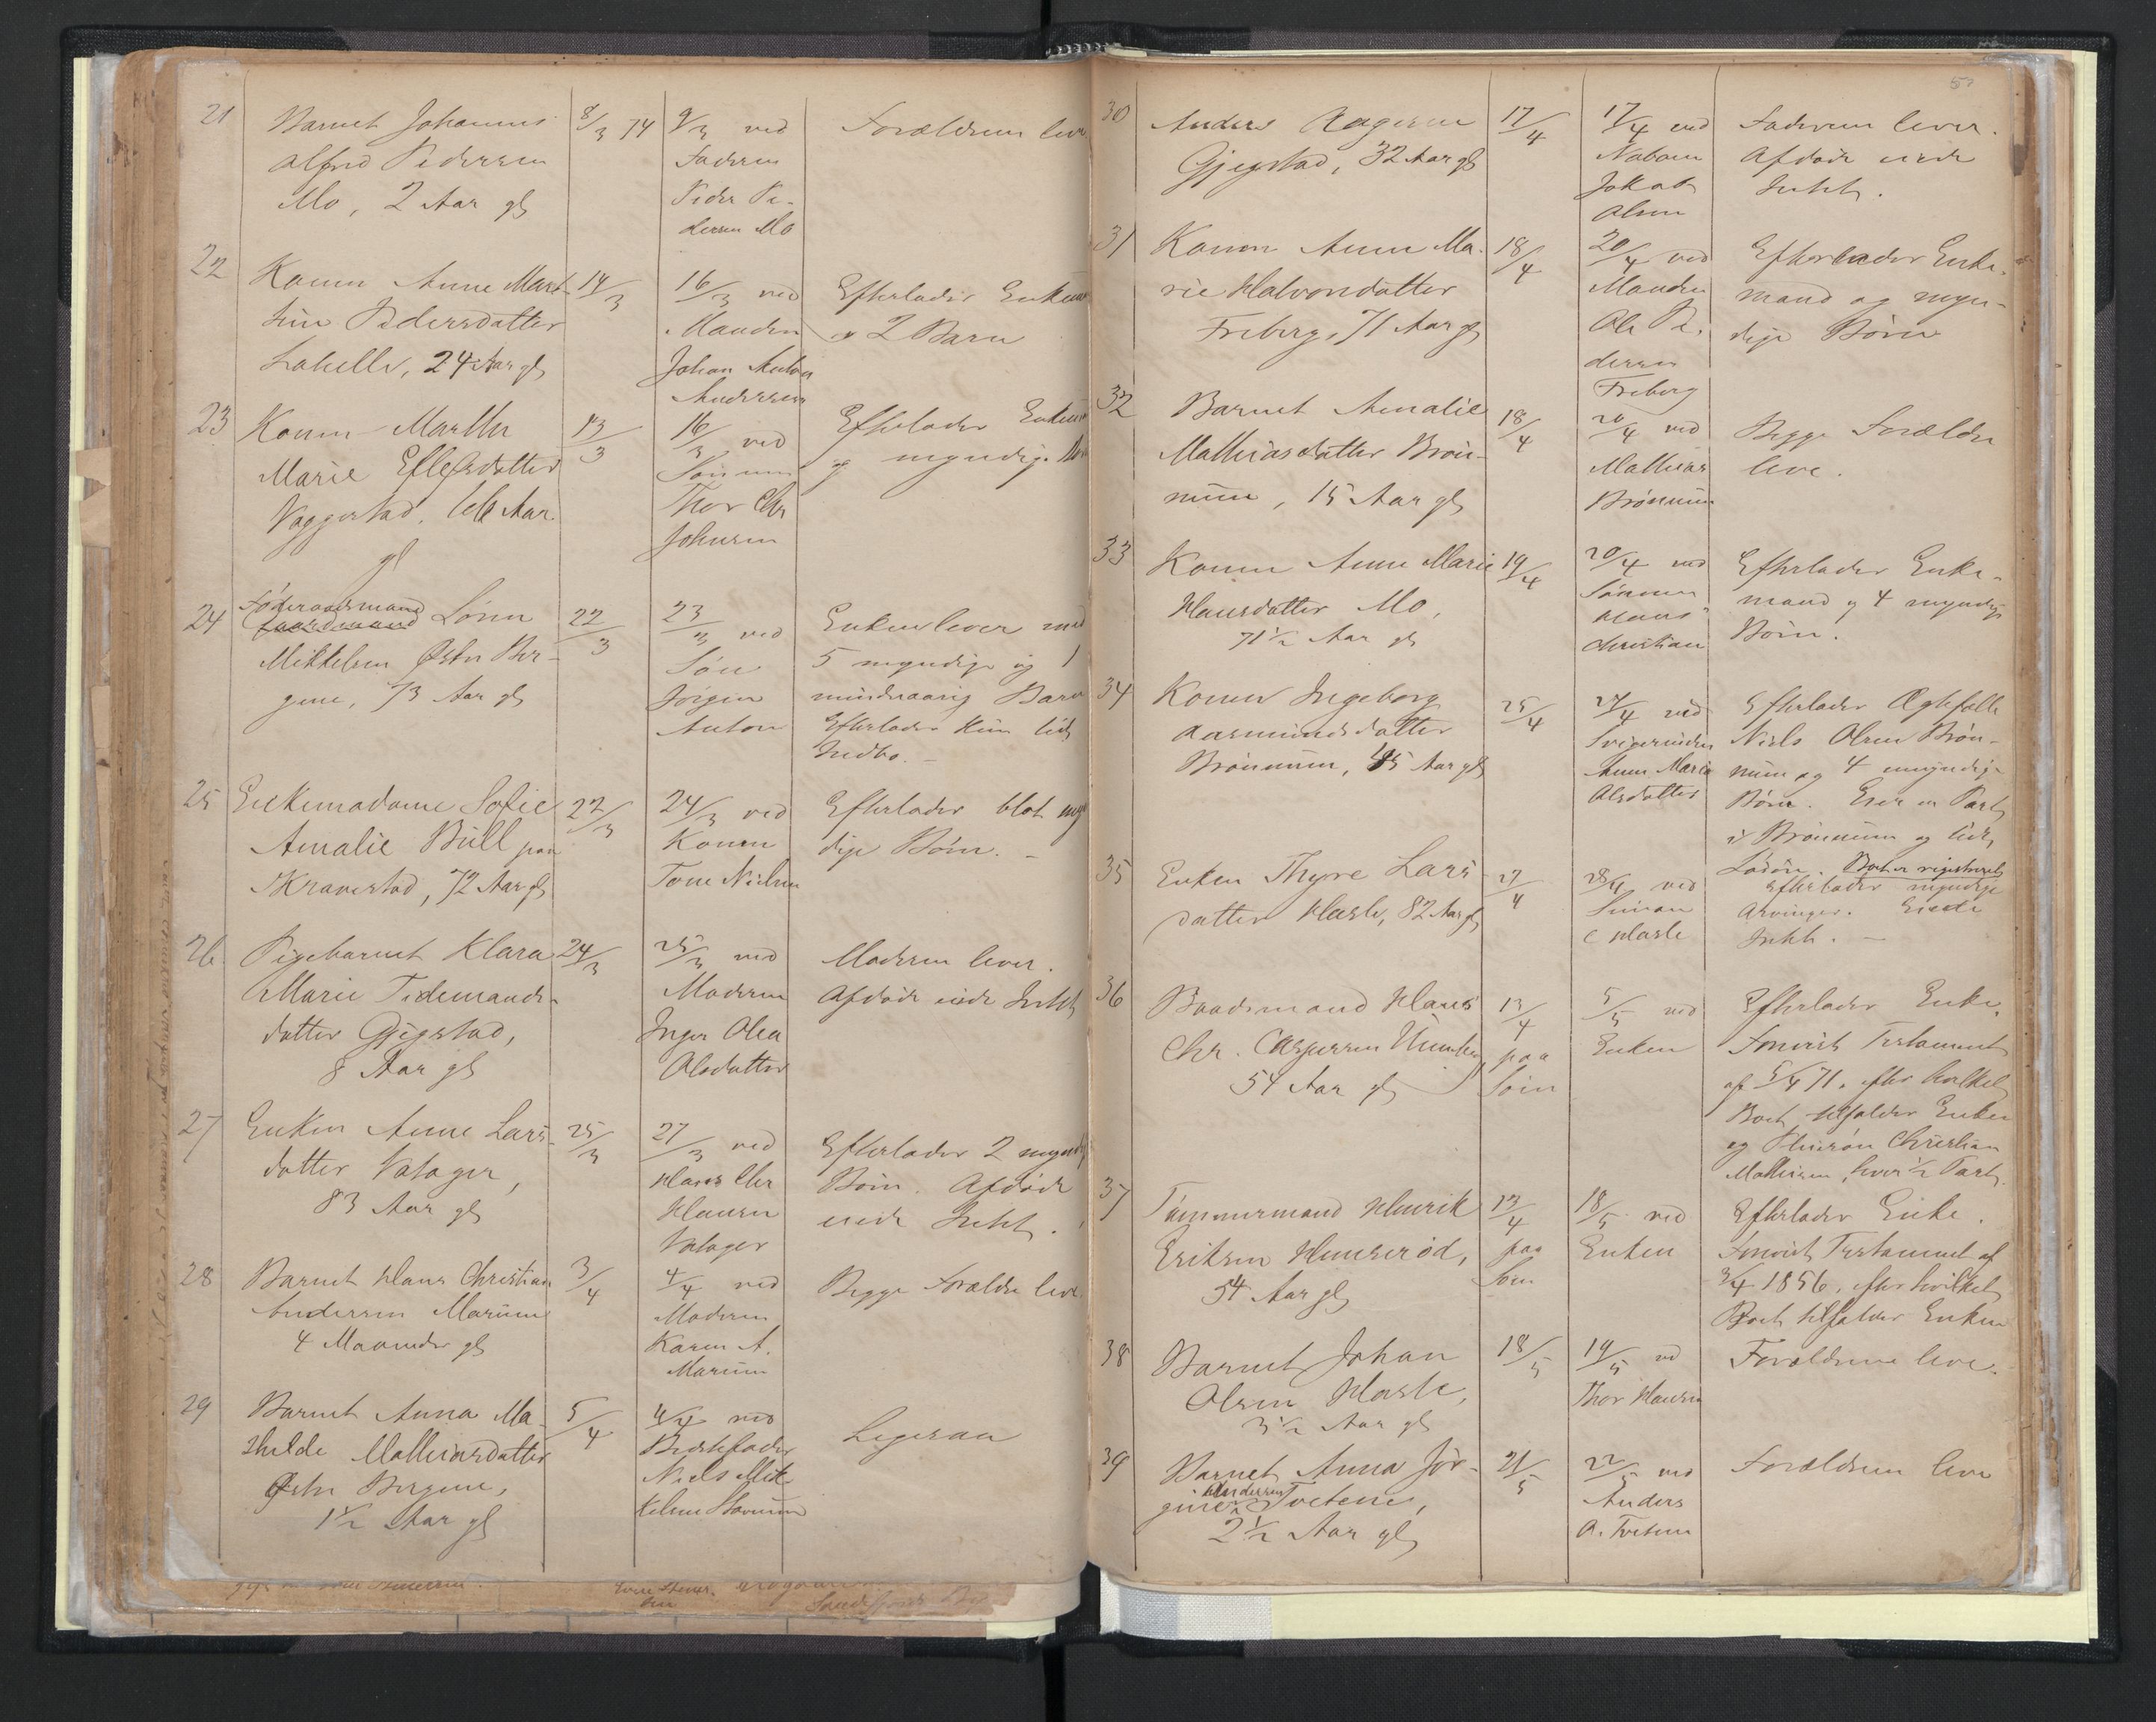 21 Barnet Johannes 8/3 74 9/3 ved Forældrene lever
Alfred Pedersen Faderen
Mo, 2 Aar gl Peder Pe-
dersen Mo
22 Konen Anne Mart- 14/3 16/3 ved Efterlader Enkem
hine Pedersdatter Manden 2 Barn
Lahelle, 24 Aar gl Johan Anton
Andersen
23 Konen Marthe 13/3 16/3 ved Efterlader Enkem
Marie Ellefsdatter Sønnen og myndige
Vaggestad, 66 Aar Thor Chr
gl Johnsen
24 Føderaadsmand Sören 22/3 23/3 ved Enken lever med
Mikkelsen Østre Ber- Søn 5 myndige og 1
gene, 73 Aar gl Jörgen mindreaarig Barn
Anton Efterlader kun lidt
Indbo. -
25 Enkemadame Sofie 22/3 24/3 ved Efterlader blot myn
Amalie Bull paa Konen dige Börn. -
Skravestad, 72 Aar gl Tone Nielsen
26 Pigebarnet Klara 24/3 25/3 ved Moderen lever.
Marie Tidemands- Moderen Afdøde eiede Intet
datter Gjegstad, Inger Olea
8 Aar gl Olsdatter
27 Enken Anne Lars- 25/3 27/3 ved Efterlader 2 mynd
datter Valager, Hans Chr Börn. Afdøde
83 Aar gl Hansen eiede Intet.
Valager
28 Barnet Hans Christian 3/4 4/4 ved Begge Forældre leve
Andersen Marum Moderen
4 Maaneder gl Karen A.
Marum
29 Barnet Anna Ma- 5/4 6/4 ved Ligesaa
thilde Mathiasdatter Bedstefader
Østre Bergene, Niels Mik-
1 1/2 Aar gl kelsen Stavnum
30 Anders Aagesen 17/4 17/4 ved Faderen lever.
Gjegstad, 32 Aar gl Naboen Afdøde eiede
Jakob Intet.
Olsen
31 Konen Anne Ma- 18/4 20/4 ved Efterlader Enke-
rie Halvorsdatter Manden mand og myn-
Freberg, 71 Aar gl Ole Pe- dige Börn
dersen
Freberg
32 Barnet Amalie 18/4 20/4 ved Begge Forældre
Mathiasdatter Brön- Mathias leve.
num, 15 Aar gl Brönnum
33 Konen Anne Marie 19/4 20/4 ved Efterlader Enke-
Hansdatter Mo, Sønnen mand og 4 myndige
71 1/2 Aar gl Hans Börn.
Christian
34 Konen Ingeborg 25/4 27/4 ved Efterlader Ægtefælle
Aasmundsdatter Svigerinden Niels Olsen Brön-
Brönnum, 45 Aar gl Anne Marie num og 4 umyndige
Olsdatter Börn. Eier en Part
i Brönnum og lidt
Løsøre. Boet er registreret
35 Enken Thyre Lars 27/4 28/4 ved Efterlader myndige
datter Hasle, 82 Aar gl Simon Arvinger. Eiede
C Hasle Intet. -
36 Baadsmand Hans 13/4 5/5 ved Efterlader Enke,
Chr. Caspersen paa Enken Forevist Testament
54 Aar gl Söen af 5/4 71, efter hvilket
Boet tilfalder Enken
og Pleiesön Christian
Mathisen, hver 1/2 Part.
37 Tømmermand Henrik 13/4 18/5 ved Efterlader Enke.
Eriksen Hunserød, paa Enken Forevist Testament af
54 Aar gl Söen 3/4 1856, efter hvilket
Boet tilfalder Enken
38 Barnet Johan 18/5 19/5 ved Forældrene leve.
Olsen Hasle, Thor Hansen
3 1/2 Aar gl
39 Barnet Anna Jör- 21/5 22/5 ved Forældrene leve
gine Andersen Tvetene, Anders
2 1/2 Aar gl A. Tvetene